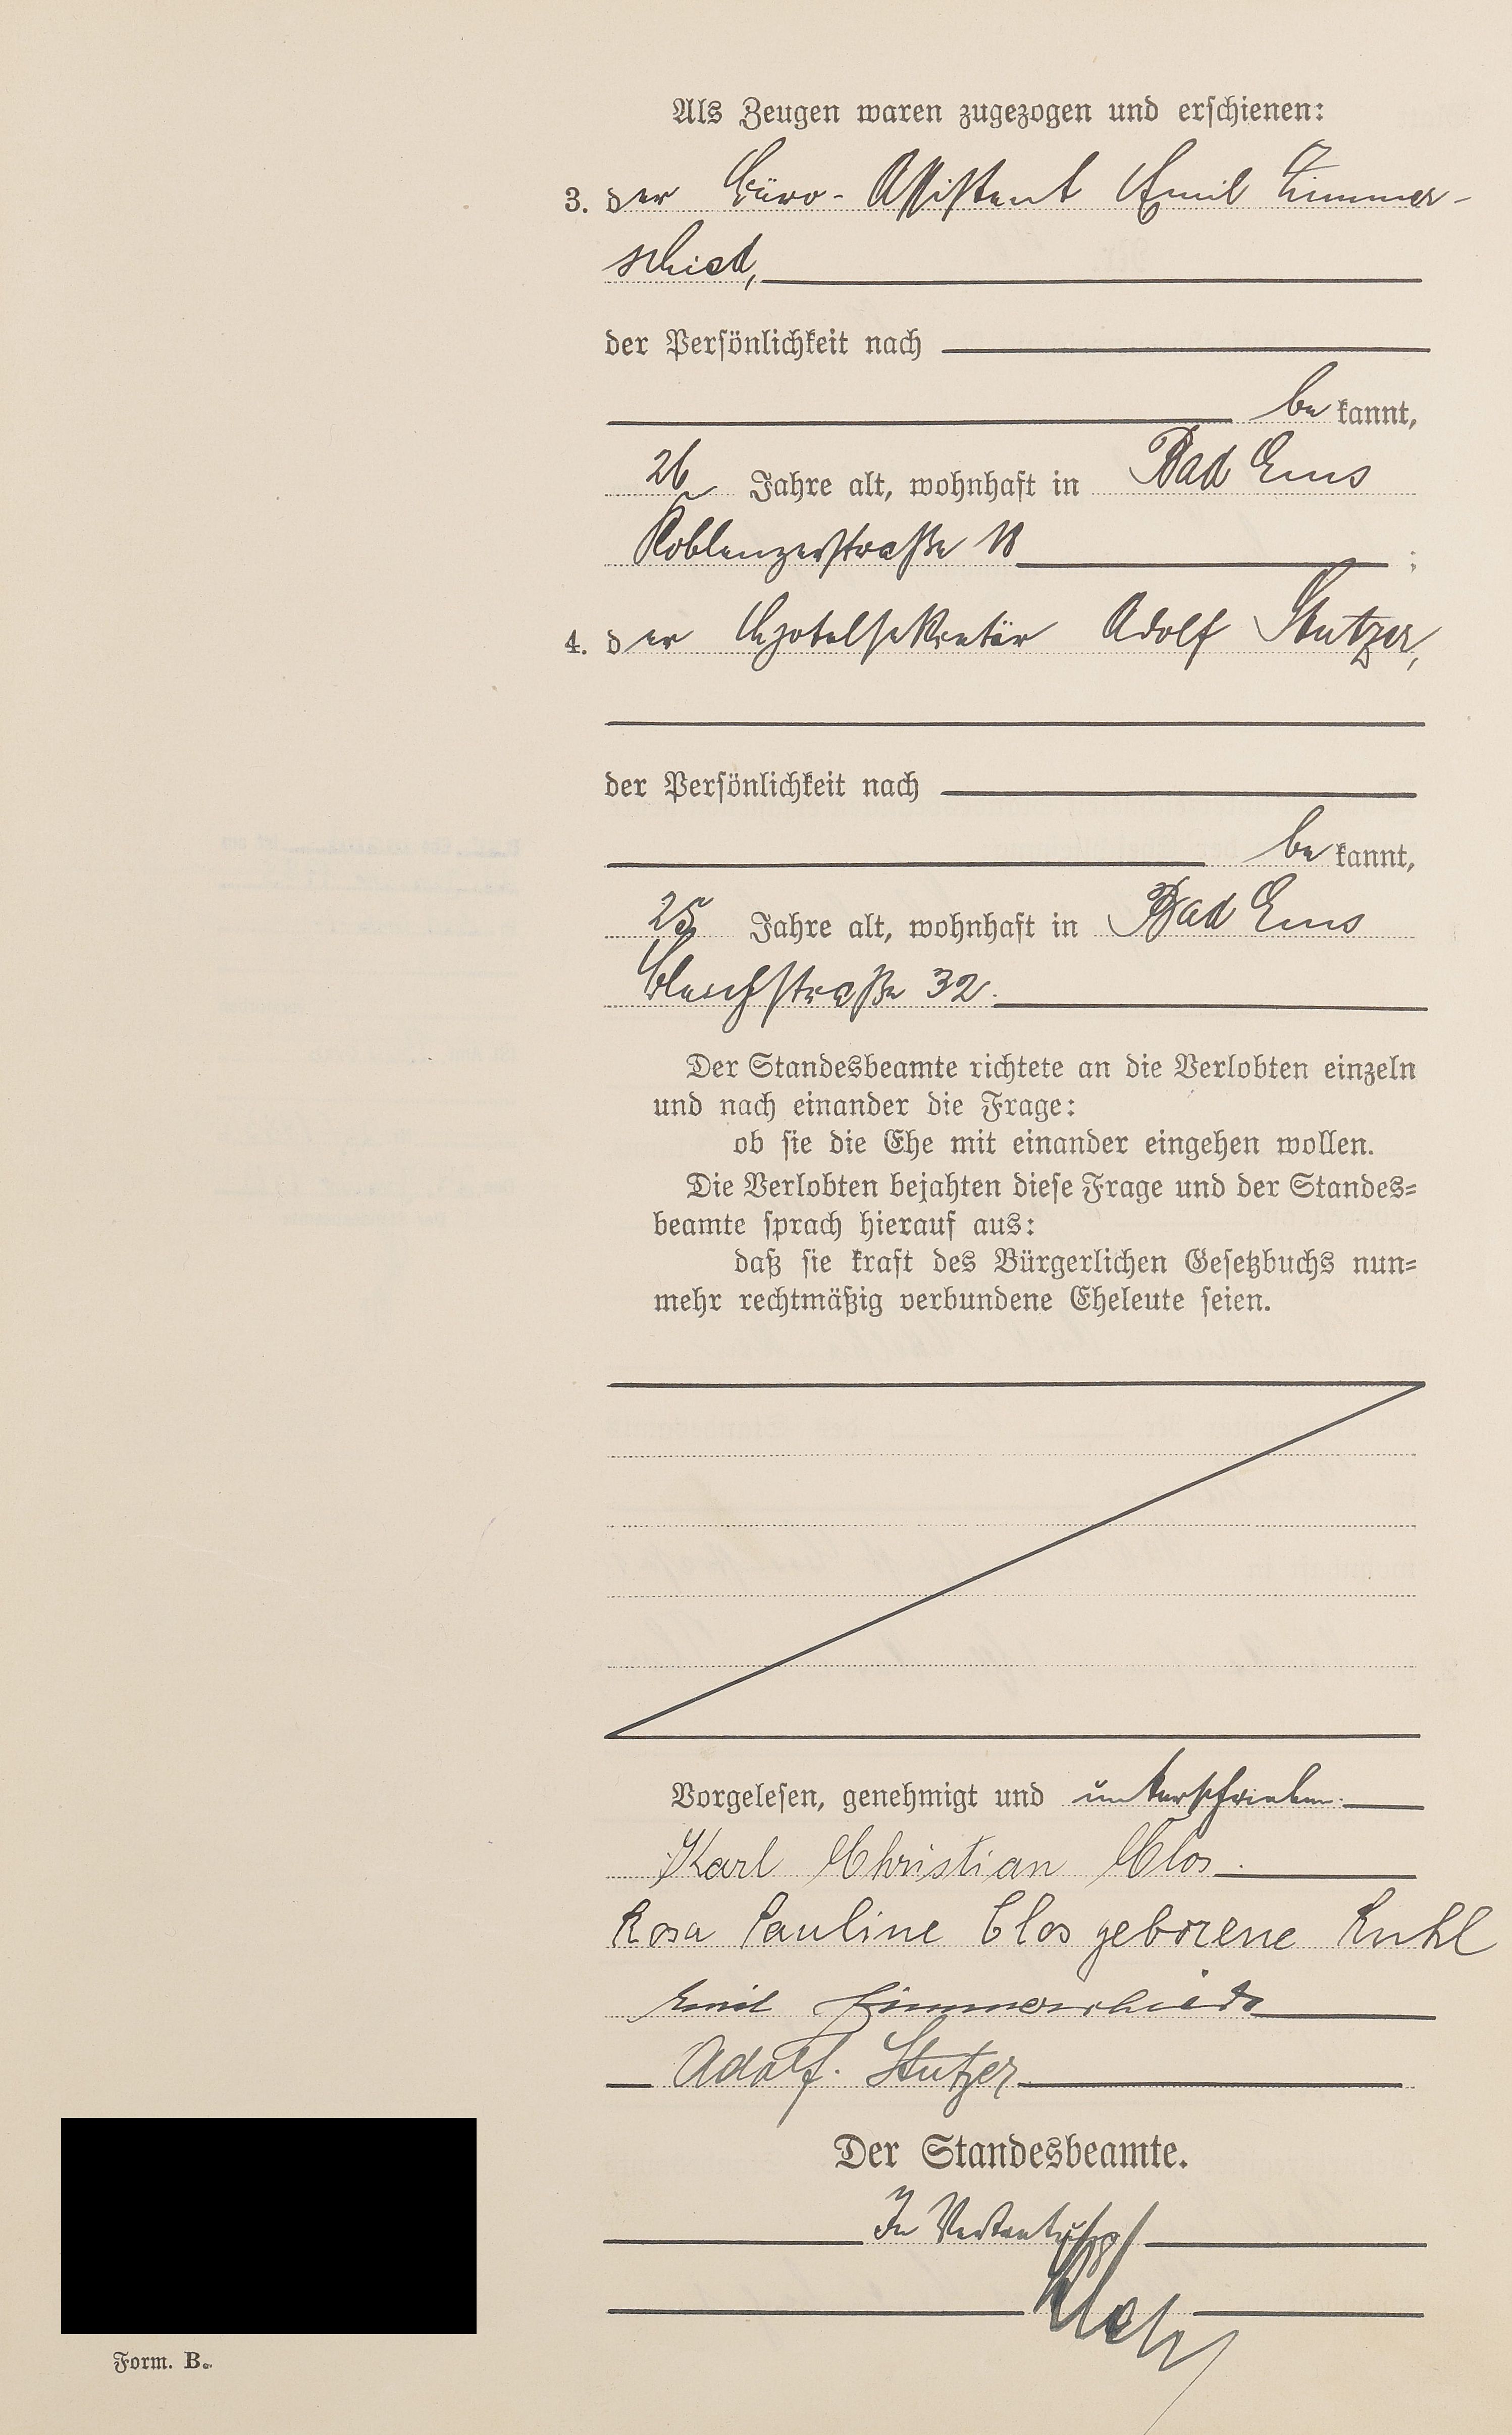 Als Zeugen waren zugezogen und erschienen:
3. der Büro-Assistent Emil Zimmer-
schied,
der Persönlichkeit nach
bekannt,
26 Jahre alt, wohnhaft in Bad Ems
Koblenzerstraße 18 ;
4. der Hotelsekretär Adolf Stutzer,
der Persönlichkeit nach
bekannt,
25 Jahre alt, wohnhaft in Bad Ems
Bleichstraße 32.
Der Standesbeamte richtete an die Verlobten einzeln
und nach einander die Frage:
ob sie die Ehe mit einander eingehen wollen.
Die Verlobten bejahten diese Frage und der Standes=
beamte sprach hierauf aus:
daß sie kraft des Bürgerlichen Gesetzbuchs nun=
mehr rechtmäßig verbundene Eheleute seien.
Vorgelesen, genehmigt und unterschrieben.
Karl Christian Clos.
Rosa Pauline Clos geborene Kuhl
Emil Zimmerschied
Adolf Stutzer
Der Standesbeamte.
In Vertretung
Form. B.